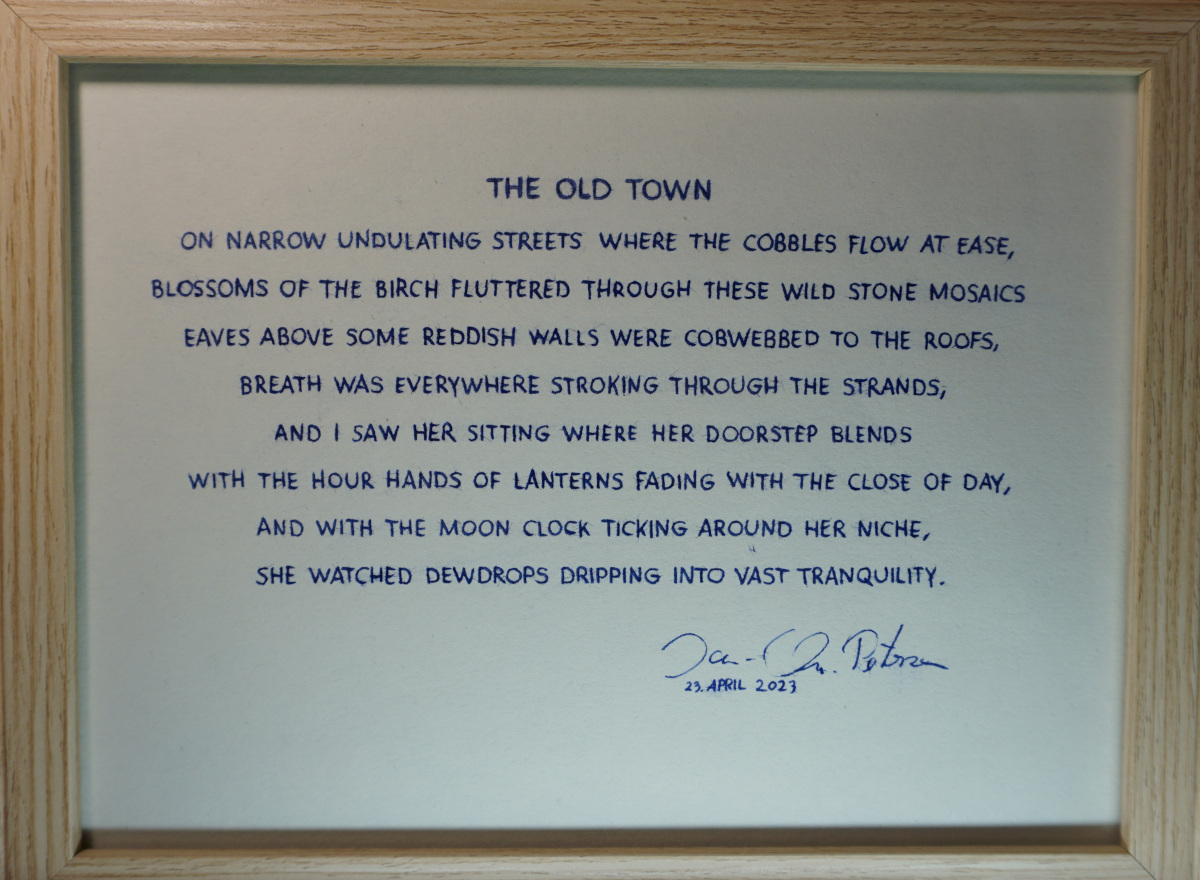 THE OLD TOWN
ON NARROW UNDULATING STREETS WHERE THE COBBLES FLOW AT EASE,
BLOSSOMS OF THE BIRCH FLUTTERED THROUGH THESE WILD STONE MOSAICS
EAVES ABOVE SOME REDDISH WALLS WERE COBWEBBED TO THE ROOFS,
BREATH WAS EVERYWHERE STROKING THROUGH THE STRANDS,
AND I SAW HER SITTING WHERE HER DOORSTEP BLENDS
WITH THE HOUR HANDS OF LANTERNS FADING WITH THE CLOSE OF DAY,
AND WITH THE MOON CLOCK TICKING AROUND HER NICHE,
SHE WATCHED DEWDROPS DRIPPING INTO VAST TRANQUILITY.
Petersen
23. APRIL 2023